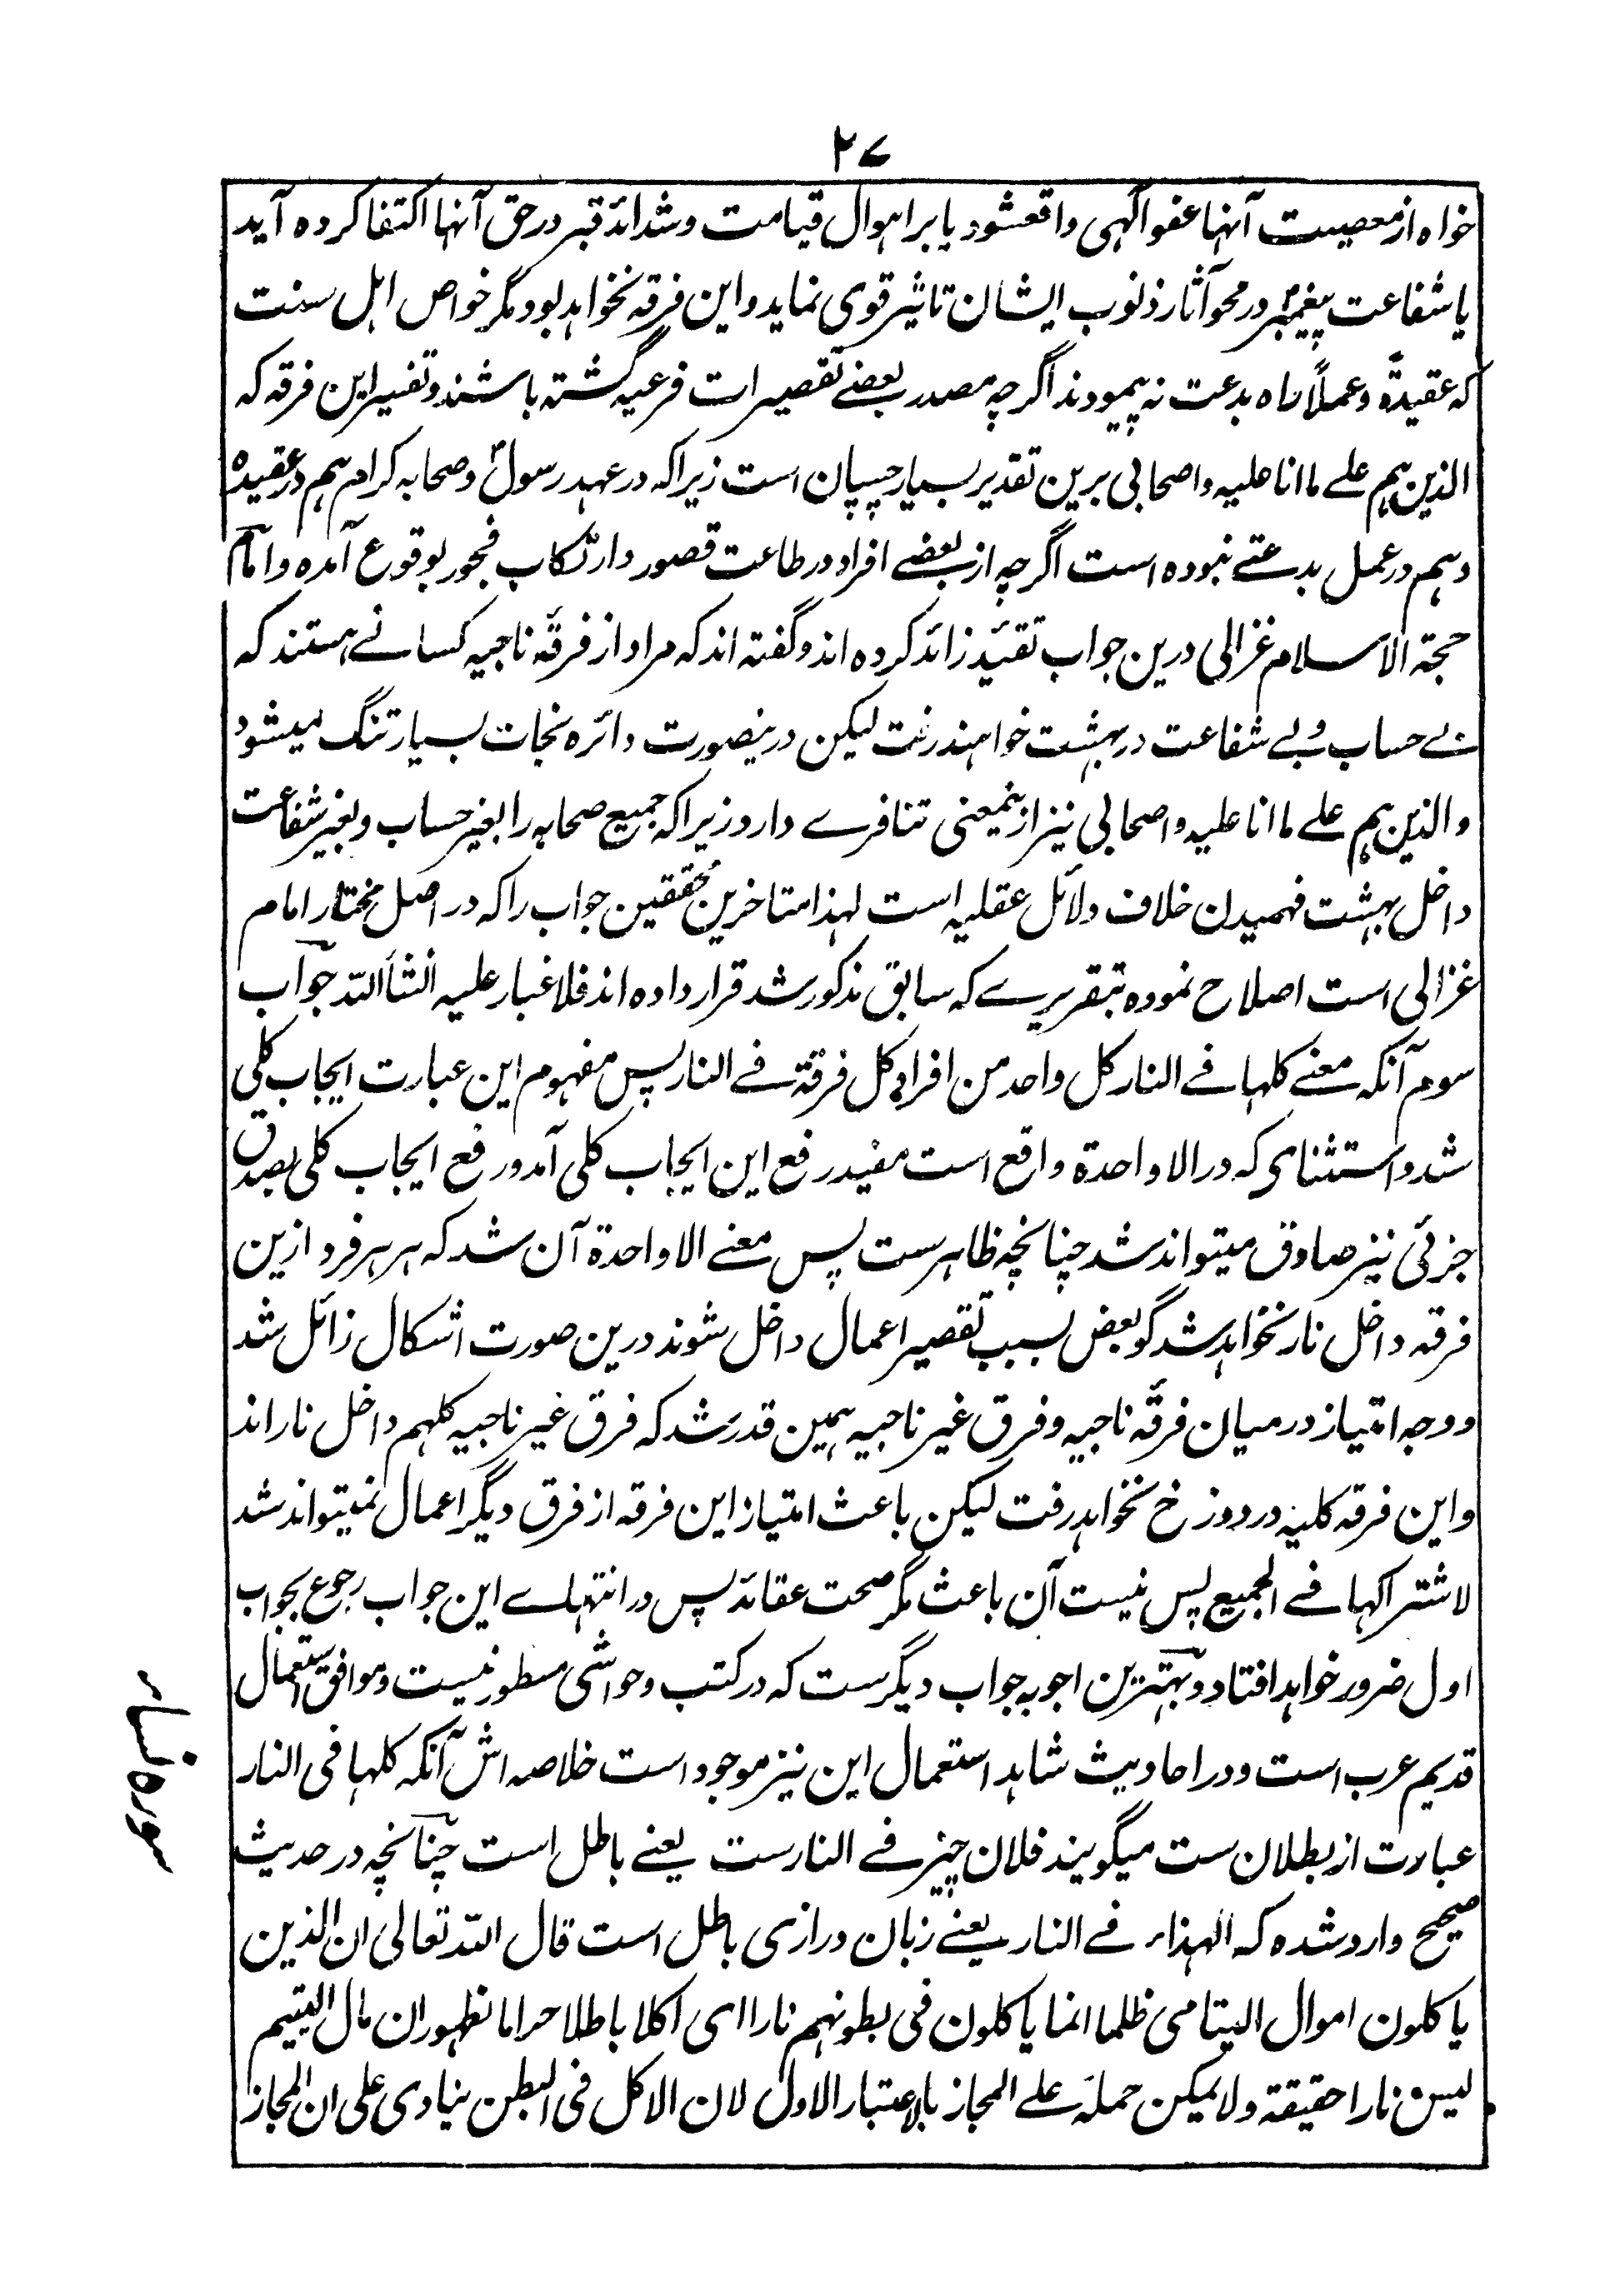 ۲۷
خواه از معصیت آنها عفو الٓهی واقعشود یا بر اهوال قیامت و شدائد قبر در حق آنها اکتفا کرده آید
یا شفاعت پیغمبرؐ در محو آثار ذنوب ایشان تاثیر قوی نماید و این فرقه نخواهد بود مگر خواص اهل سنت
که عقیدةً و عملاً راه بدعت نه پیمودند اگرچه مصدر بعضے تقصیرات فرعیه گشته باشند و تفسیر این فرقه که
الذین هم علے ما انا علیه و اصحابی برین تقدیر بسیار چسپان است زیراکه در عهد رسولؐ و صحابه کرام هم در عقیده
و هم در عمل بدعتے نبوده است اگرچه از بعضے افراد در طاعت قصور و ارتکاب فجور بوقوع آمده و امام
حجة الاسلام غزالی درین جواب تقئید زائد کرده اند و گفته اند که مراد از فرقهٔ ناجیه کسانے هستند که
بے حساب و بے شفاعت در بهشت خواهند رفت لیکن درینصورت دائره نجات بسیار تنگ میشود
و الذین هم علے ما انا علیه و اصحابی نیز ازینمعنی تنافرے دارد زیراکه جمیع صحابه را بغیر حساب و بغیر شفاعت
داخل بهشت فهمیدن خلاف دلائل عقلیه است لهذا متاخرین محققین جواب را که در اصل مختار امام
غزالی است اصلاح نموده بتقریرے که سابق مذکور شد قرار داده اند فلا غبار علیه انشأ الله جواب
سوم آنکه معنے کلها فے النار کل واحد من افراد کل فرقة فے النار پس مفهوم این عبارت ایجاب کلی
شد و استثنای که در الا واحدة واقع است مفید رفع این ایجاب کلی آمد و رفع ایجاب کلی بصدق
جزئی نیز صادق میتواند شد چنانچه ظاهرست پس معنے الا واحدة آن شد که هر هر فرد ازین
فرقه داخل نار نخواهد شد گو بعض بسبب تقصیر اعمال داخل شوند درین صورت اشکال زائل شد
و وجه امتیاز درمیان فرقهٔ ناجیه و فرق غیر ناجیه همین قدر شد که فرق غیر ناجیه کلهم داخل نار اند
و این فرقه کلیة در دوزخ نخواهد رفت لیکن باعث امتیاز این فرقه از فرق دیگر اعمال نمیتواند شد
لاشتراکها فے الجمیع پس نیست آن باعث مگر صحت عقائد پس در انتهاے این جواب رجوع بجواب
اول ضرور خواهد افتاد و بهترین اجوبه جواب دیگرست که در کتب و حواشی مسطور نیست و موافق استعمال
قدیم عرب است و در احادیث شاهد استعمال این نیز موجود است خلاصه اش آنکه کلها فی النار
عبارت از بطلان ست میگویند فلان چیز فے النارست یعنے باطل است چنانچه در حدیث
صحیح وارد شده که الهذاء فے النار یعنے زبان درازی باطل است قال الله تعالی ان الذین
یاکلون اموال الیتامی ظلما انما یاکلون فی بطونهم نارا ای اکلا باطلا حراما لظهور ان مال الیتیم
لیس نارا حقیقة و لا یمکن حمله علے المجاز بالاعتبار الاول لان الاکل فی البطن ینادی علی ان المجاز
سوره نساء